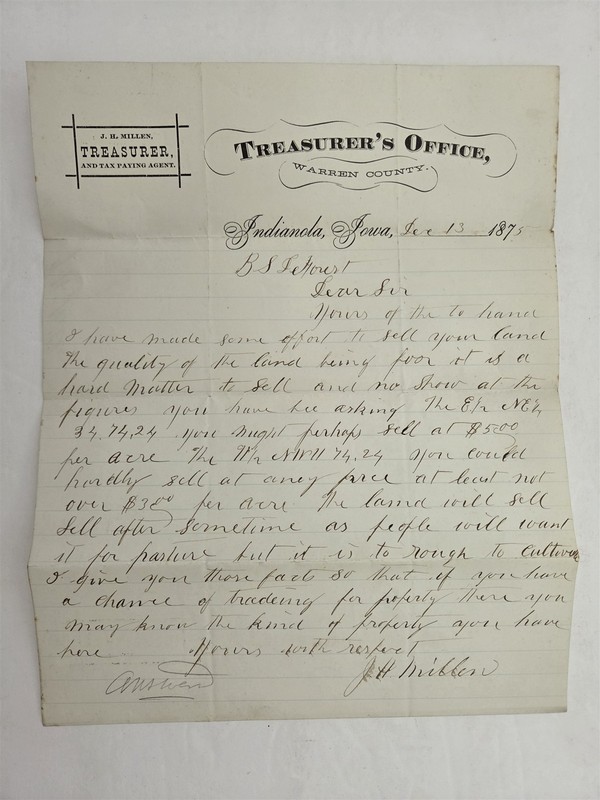 J. H. MILLEN,
TREASURER,
AND TAX PAYING AGENT.
TREASURER'S OFFICE,
WARREN COUNTY.
Indianola, Iowa, Dec 13 1875
B S
Dear Sir
Yours of the to hand
I have made some effort to sell your land
the quality of the land being poor it is a
hard matter to sell and no show at the
figures you have bee asking The E½ NE¼
34,74,24 you might perhaps sell at $5.00
per acre The NW¼ 74,24 you could
hardly sell at aney price at least not
over $3.00 per acre The land will sell
sell after sometime as people will want
it for pasture but it is to rough to cultivate
I give you those facts so that if you have
a chance of tradeing for property there you
may know the kind of property you have
here Yours with respect
J H Millen